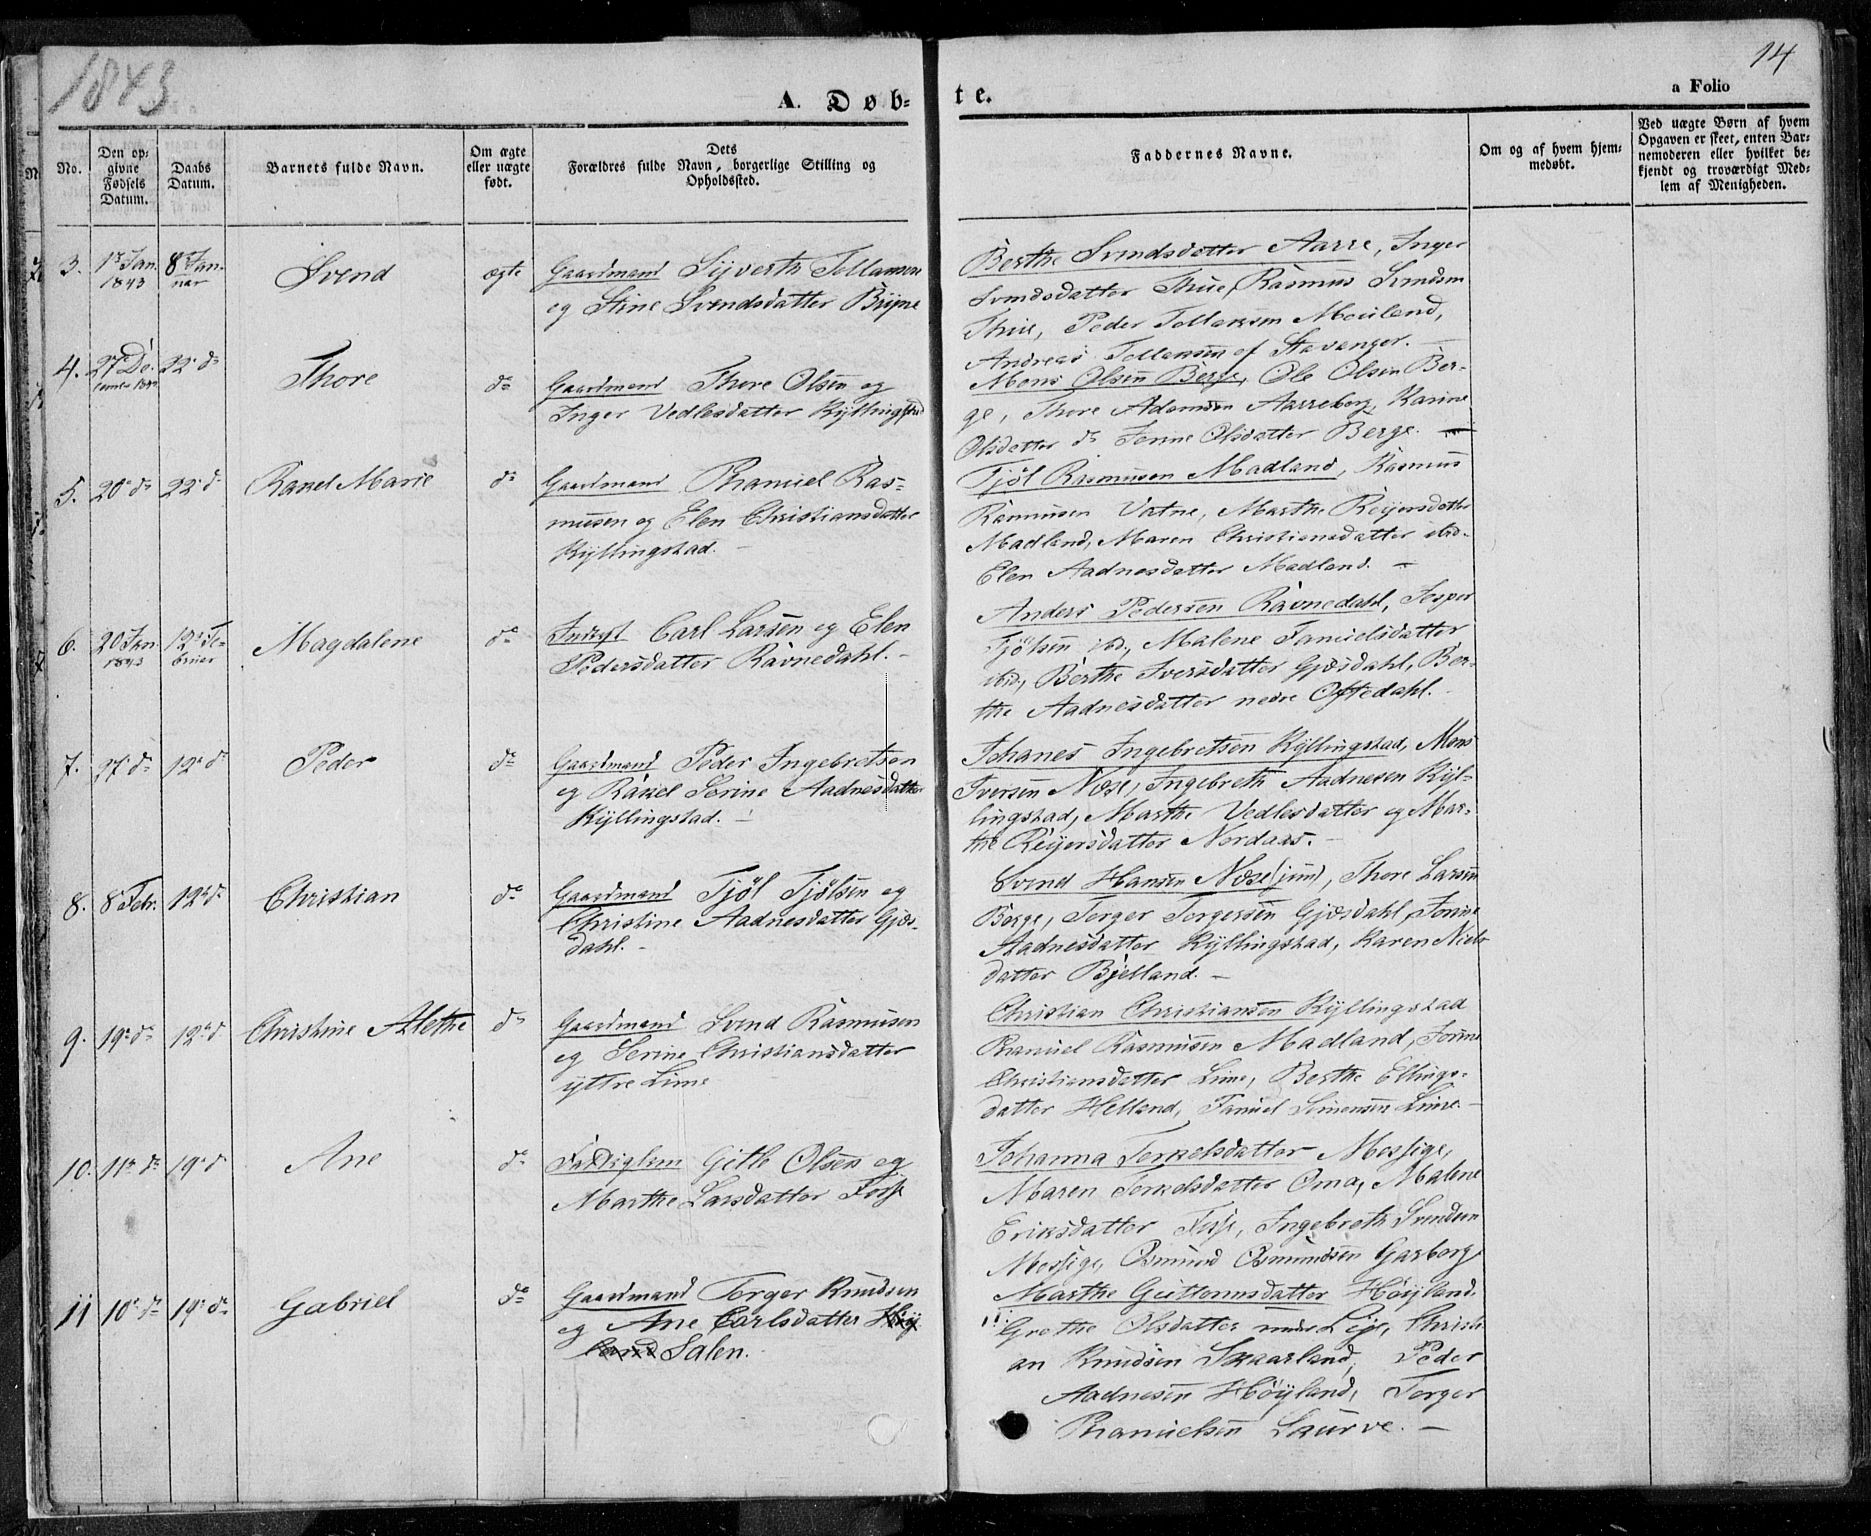 1843
14
A. Døb-
te.
a Folio
No.
Den op-
givne
Fødsels
Datum.
Daabs
Datum.
Barnets fulde Navn.
Om ægte
eller uægte
født.
Dets
Forældres fulde Navn, borgerlige Stilling og
Opholdssted.
Faddernes Navne.
Om og af hvem hjem-
medøbt.
Ved uægte Børn af hvem
Opgaven er skeet, enten Bar-
nemoderen eller hvilket be-
kjendt og troværdigt Med-
lem af Menigheden.
3.
1ste Jan.
1843
8de Jan-
uar
Svend
ægte
Gaardmand Syverth Tollamsen
og Stine Svendsdatter Bryne
Berthe Svendsdatter Aarre, Inger
Svendsdatter Thue, Rasmus Svendsen
Thue, Peder Tollaksen Mæland,
Andreas Tollaksen af Stavanger.
4.
27 De-
cember 1842
22 do
Thore
do
Gaardmand Thore Olsen og
Inger Vedlesdatter Kyllingstad
Mons Olsen Berge, Ole Olsen Ber-
ge, Thore Adamsen Aarreberg, Karine
Olsdatter do Serine Olsdatter Berge. —
5.
20 do
22 do
Ranel Marie
do
Gaardmand Thamiel Ras-
mussen og Elen Christiansdatter
Kyllingstad. —
Tjøl Rasmussen Madland, Rasmus
Rasmussen Vatne, Marthe Reyersdatter
Madland, Maren Christiansdatter ibid.
Elen Aadnesdatter Madland. —
6.
20 Jan.
1843
12te Fe-
bruar
Magdalene
do
Inderst Carl Larsen og Elen
Pedersdatter Ravnedahl. —
Anders Pedersen Ravnedahl, Jesper
Tjølsen ibd., Malene Samuelsdatter
ibid., Berthe Iversdatter Gjesdahl, Ber-
the Aadnesdatter nedre Oftedahl.
7.
27 do
12 do
Peder
do
Gaardmand Peder Ingebretsen
og Rakel Serine Aadnesdatter
Kyllingstad. —
Johanes Ingebretsen Kyllingstad, Mons
Iversen Næse, Ingebreth Aadnesen Kyl-
lingstad, Marthe Vedlesdatter og Mar-
the Reyersdatter Nordaas. —
8.
8 Febr.
12 do
Christian
do
Gaardmand Tjøl Tjølsen og
Christine Aadnesdatter Gjes-
dahl. —
Svend Hansen Næse (jun), Thore Larsen
Berge, Torger Torgersen Gjesdahl, Serine
Aadnesdatter Kyllingstad, Karen Niels-
datter Bjelland. —
9.
19 do
12 do
Christine Alethe
do
Gaardmand Svend Rasmussen
og Serine Christiansdatter
yttre Lime
Christian Christiansen Kyllingstad
Thamiel Rasmussen Madland, Serine
Christiansdatter Lime, Berthe Ellings-
datter Helland, Samuel Simensen Lime. —
10.
11 do
19 do
Ane
do
Fattiglem Gitle Olsen og
Marthe Larsdatter
Johanna Terkelsdatter Mossige,
Maren Terkelsdatter Oma, Malene
Eriksdatter Ingebreth Svendsen
Mossige, Osmund Osmundsen Garborg
11
10 do
19 do
Gabriel
do
Gaardmand Torger Knudsen
og Ane Carlsdatter Høy-
land Salen.
Marthe Guttormsdatter Høyland
11.
Grethe Olsdatter Lye, Christi-
an Knudsen Skaarland, Peder
Aadnesen Høyland, Torger
Thamielsen Laurve. —